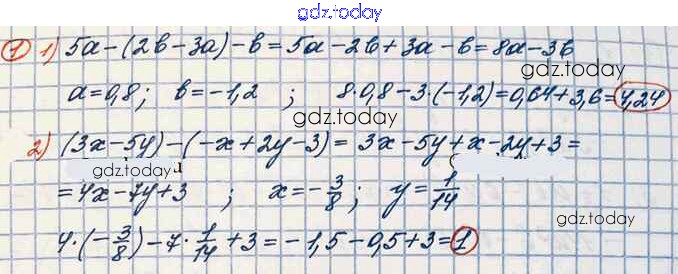 gdz.today
gdz.today
① 1) 5a-(2b-3a)-b=5a-2b+3a-b=8a-3b
gdz.today
a=0,8; b=-1,2 ; 8·0,8-3·(-1,2)=0,64+3,6=4,24
gdz.today
2) (3x-5y)-(-x+2y-3)= 3x-5y+x-2y+3=
gdz.today
=4x-7y+3 ; x=-3/8; y=1/14
gdz.today
4·(-3/8)-7·1/14+3=-1,5-0,5+3=1
gdz.today